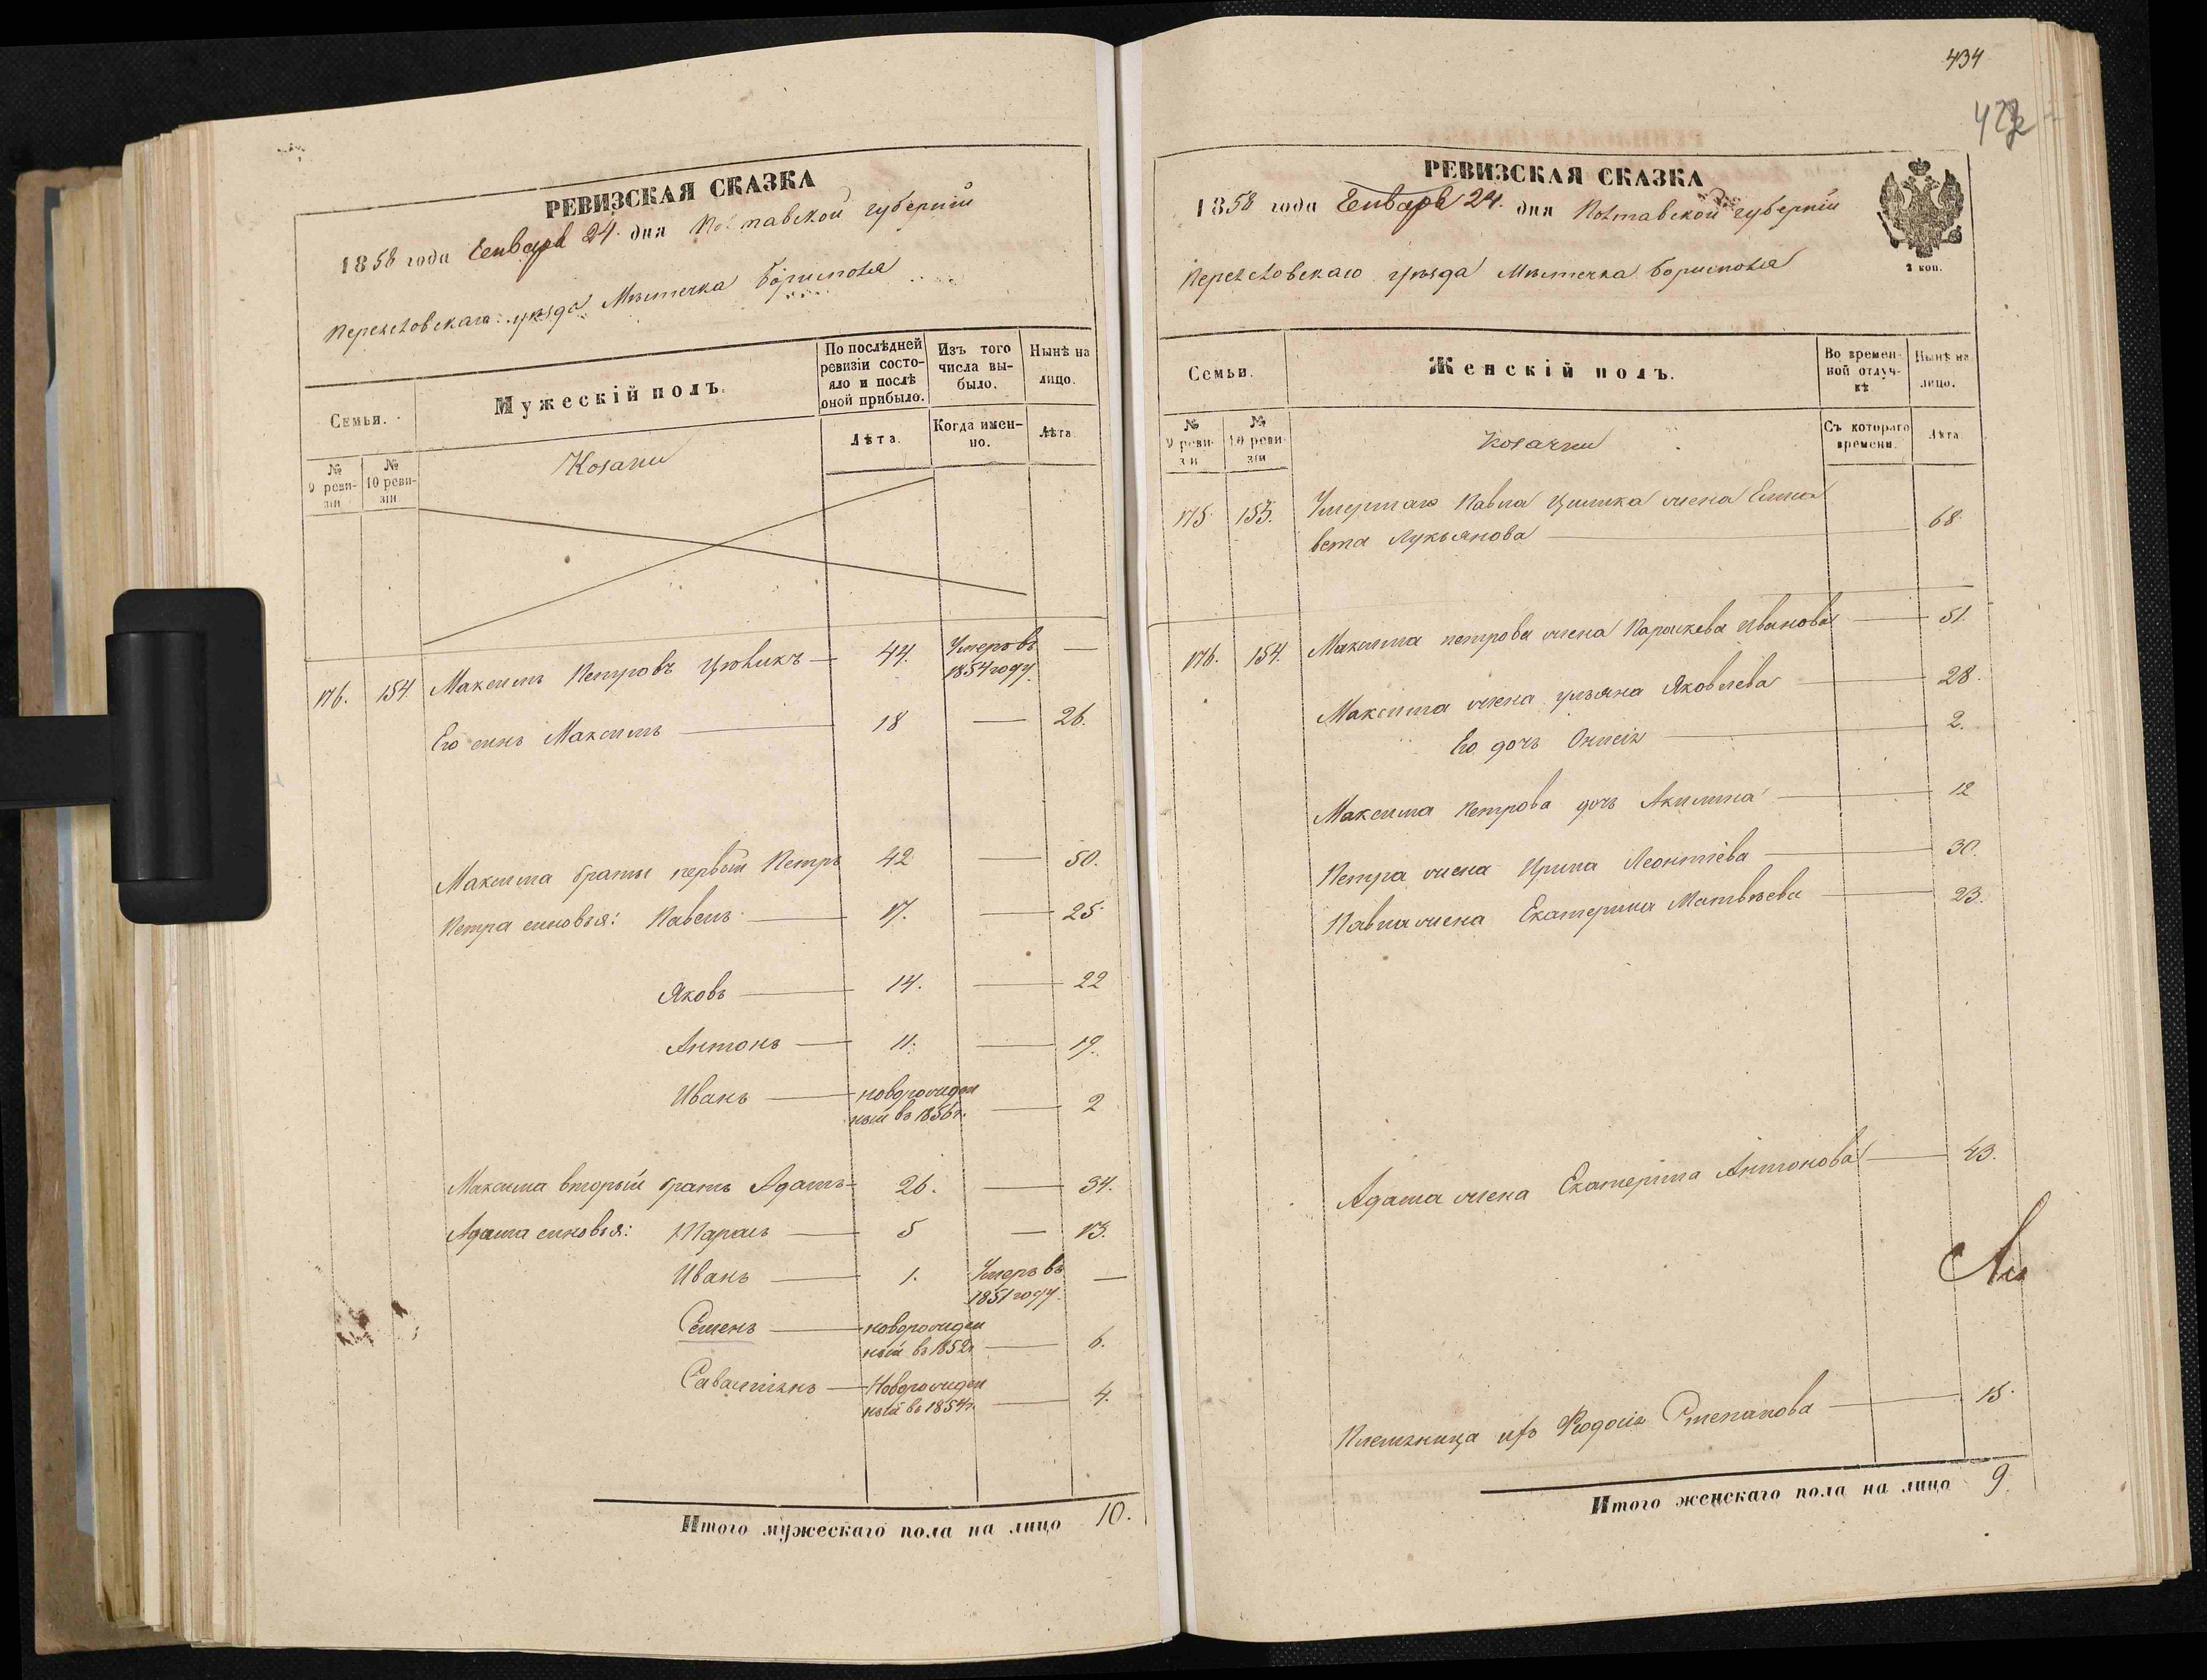 РЕВИЗСКАЯ СКАЗКА
1858 года Генваря 24. дня Полтавской губерніи
Переяславскаго уѣзда Мѣстечка Борисполя
Семьи.
Мужескій полъ.
По послѣдней ревизіи состояло и послѣ оной прибыло.
Изъ того числа выбыло.
Нынѣ на лицо.
№ 9 ревизіи
№ 10 ревизіи
Козаки
Лѣта.
Когда именно.
Лѣта
176. 154. Максимъ Петровъ Цюликъ — 44. Умеръ въ 1854 году —
Его сынъ Максимъ — 18 — 26.
Максима братья первый Петръ 42 — 50.
Петра сыновья: Павелъ — 17. — 25
Яковъ — 14. — 22
Антонъ — 11. — 19.
Иванъ — новорожденный въ 1856 г. — 2
Максима вторый братъ Адамъ — 26. — 34.
Адама сыновья: Тарасъ — 5 — 13.
Иванъ — 1. Умеръ въ 1851 году —
Семенъ — новорожденный въ 1852 г. — 6.
Савастіянъ — Новорожденный въ 1854 г. — 4.
Итого мужескаго пола на лицо 10.
434
РЕВИЗСКАЯ СКАЗКА
1858 года Генваря 24. дня Полтавской губерніи
2 коп.
Переяславскаго уѣзда Мѣстечка Борисполя
Семьи.
Женскій полъ.
Во временной отлучкѣ
Нынѣ на лицо.
№ 9 ревизіи
№ 10 ревизіи
Козачки
Съ котораго времени.
Лѣта
175 153. Умершаго Павла Цюлика жена Елиса
вета Лукьянова — 68.
176. 154. Максима петрова жена Параскева Иванова — 51.
Максима жена Ульяна Яковлева — 28.
Его дочь Онисія — 2.
Максима Петрова дочь Акилина — 12
Петра жена Ирина Леонтіева — 30.
Павла жена Екатерина Матвѣева — 23.
Адама жена Екатерина Антонова — 43.
Племяница ихъ Феодосія Степанова — 15.
Итого женскаго пола на лицо 9.